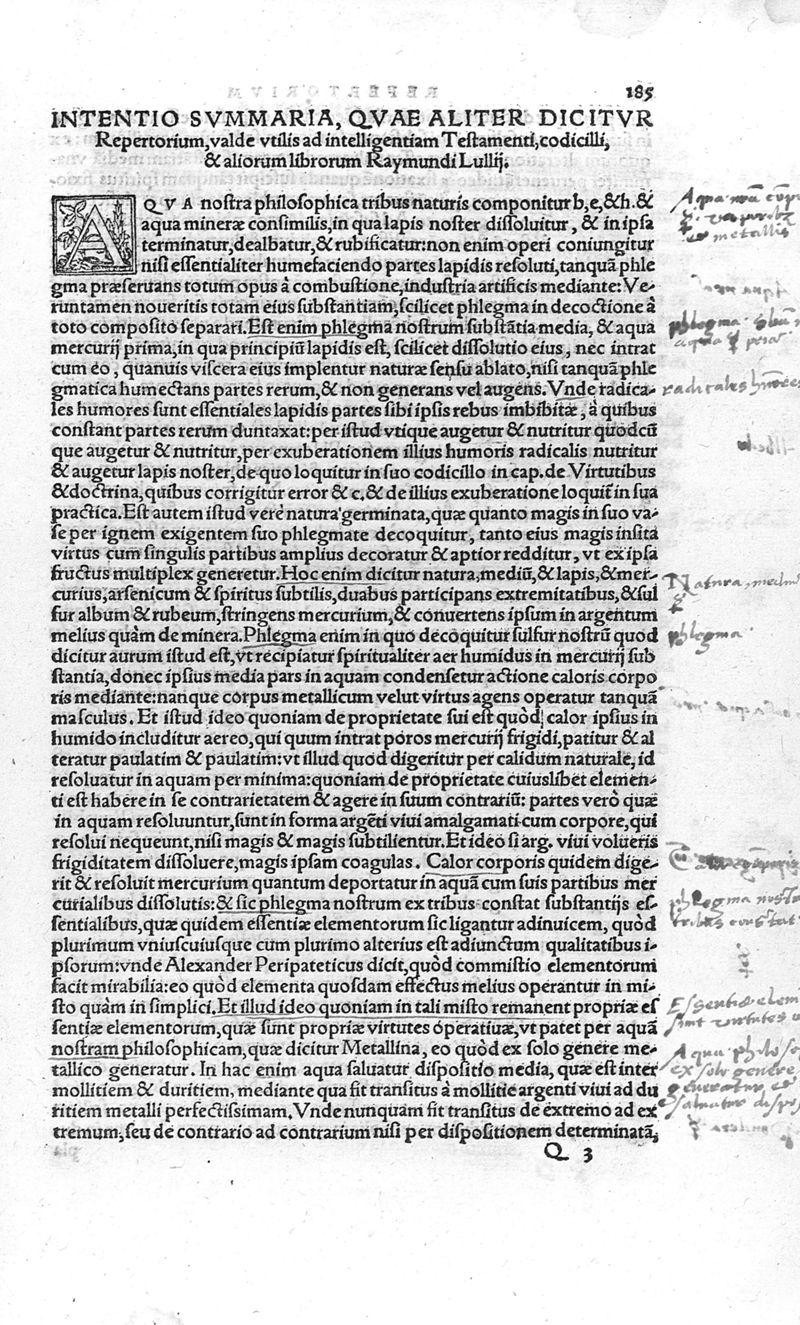 185
INTENTIO SVMMARIA, QVAE ALITER DICITVR
Repertorium, valde vtilis ad intelligentiam Testamenti, codicilli,
& aliorum librorum Raymundi Lullij.
AQVA nostra philosophica tribus naturis componitur b, e, & h. &
aqua mineræ consimilis, in qua lapis noster dissoluitur, & in ipsa
terminatur, dealbatur, & rubificatur: non enim operi coniungitur
nisi essentialiter humefaciendo partes lapidis resoluti, tanquã phle
gma præseruans totum opus à combustione, industria artificis mediante: Ve-
runtamen noueritis totam eius substantiam, scilicet phlegma in decoctione à
toto composito separari. Est enim phlegma nostrum substãtia media, & aqua
mercurij prima, in qua principiũ lapidis est, scilicet dissolutio eius, nec intrat
cum eo, quanuis viscera eius implentur naturæ sensu ablato, nisi tanquã phle
gmatica humectans partes rerum, & non generans vel augens. Vnde radica-
les humores sunt essentiales lapidis partes sibi ipsis rebus imbibitæ, à quibus
constant partes rerum duntaxat: per istud vtique augetur & nutritur quodcũ
que augetur & nutritur, per exuberationem illius humoris radicalis nutritur
& augetur lapis noster, de quo loquitur in suo codicillo in cap. de Virtutibus
& doctrina, quibus corrigitur error & c. & de illius exuberatione loquit̃ in sua
practica. Est autem istud verè natura germinata, quæ quanto magis in suo va-
se per ignem exigentem suo phlegmate decoquitur, tanto eius magis insita
virtus cum singulis partibus amplius decoratur & aptior redditur, vt ex ipsa
fructus multiplex generetur. Hoc enim dicitur natura, mediũ, & lapis, & mer-
curius, arsenicum & spiritus subtilis, duabus participans extremitatibus, & sul
fur album & rubeum, stringens mercurium, & conuertens ipsum in argentum
melius quàm de minera. Phlegma enim in quo decoquitur sulfur nostrũ quod
dicitur aurum istud est, vt recipiatur spiritualiter aer humidus in mercurij sub
stantia, donec ipsius media pars in aquam condensetur actione caloris corpo
ris mediante: nanque corpus metallicum velut virtus agens operatur tanquã
masculus. Et istud ideo quoniam de proprietate sui est quòd calor ipsius in
humido includitur aereo, qui quum intrat poros mercurij frigidi, patitur & al
teratur paulatim & paulatim: vt illud quod digeritur per calidum naturale, id
resoluatur in aquam per minima: quoniam de proprietate cuiuslibet elemen-
ti est habere in se contrarietatem & agere in suum contrariũ: partes verò quæ
in aquam resoluuntur, sunt in forma argẽti viui amalgamati cum corpore, qui
resolui nequeunt, nisi magis & magis subtilientur. Et ideo si arg. viui volueris
frigiditatem dissoluere, magis ipsam coagulas. Calor corporis quidem dige-
rit & resoluit mercurium quantum deportatur in aquã cum suis partibus mer
curialibus dissolutis: & sic phlegma nostrum ex tribus constat substantijs es-
sentialibus, quæ quidem essentiæ elementorum sic ligantur adinuicem, quòd
plurimum vniuscuiusque cum plurimo alterius est adiunctum qualitatibus i-
psorum: vnde Alexander Peripateticus dicit, quòd commistio elementorum
facit mirabilia: eo quòd elementa quosdam effectus melius operantur in mi-
sto quàm in simplici. Et illud ideo quoniam in tali misto remanent propriæ es
sentiæ elementorum, quæ sunt propriæ virtutes operatiuæ, vt patet per aquã
nostram philosophicam, quæ dicitur Metallina, eo quòd ex solo genere me-
tallico generatur. In hac enim aqua saluatur dispositio media, quæ est inter
mollitiem & duritiem, mediante qua fit transitus à mollitie argenti viui ad du
ritiem metalli perfectissimam. Vnde nunquam fit transitus de extremo ad ex
tremum, seu de contrario ad contrarium nisi per dispositionem determinatã,
Q 3
phlegma
radicales
Natura,
phlegma
phlegma
tribus constat
Essentiæ elem
sunt virtutes
Aqua philoso
ex solo genere
generatur
saluatur dispos